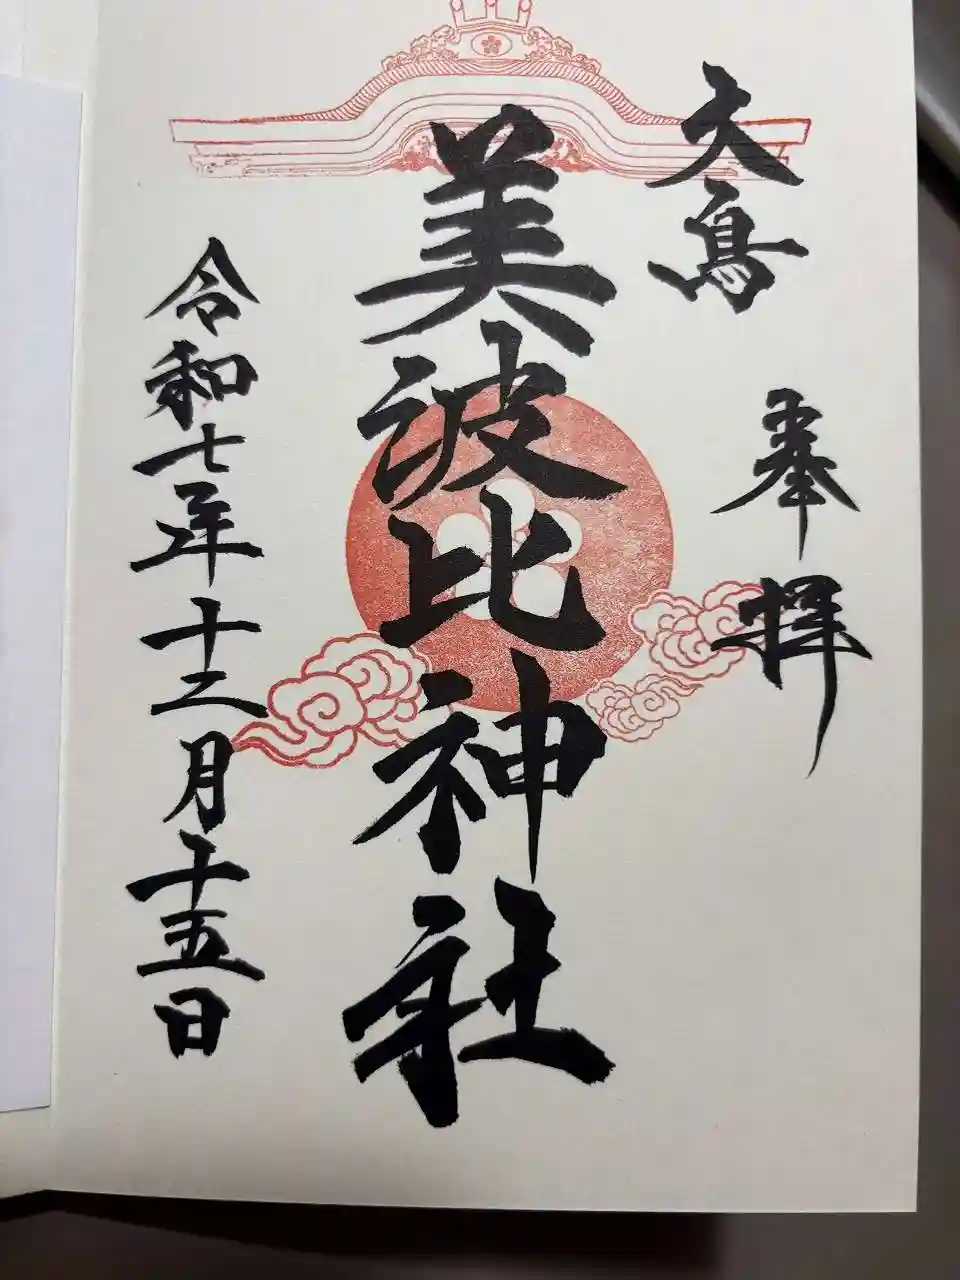 大鳥
奉拝
美波比神社
令和七年十二月十五日